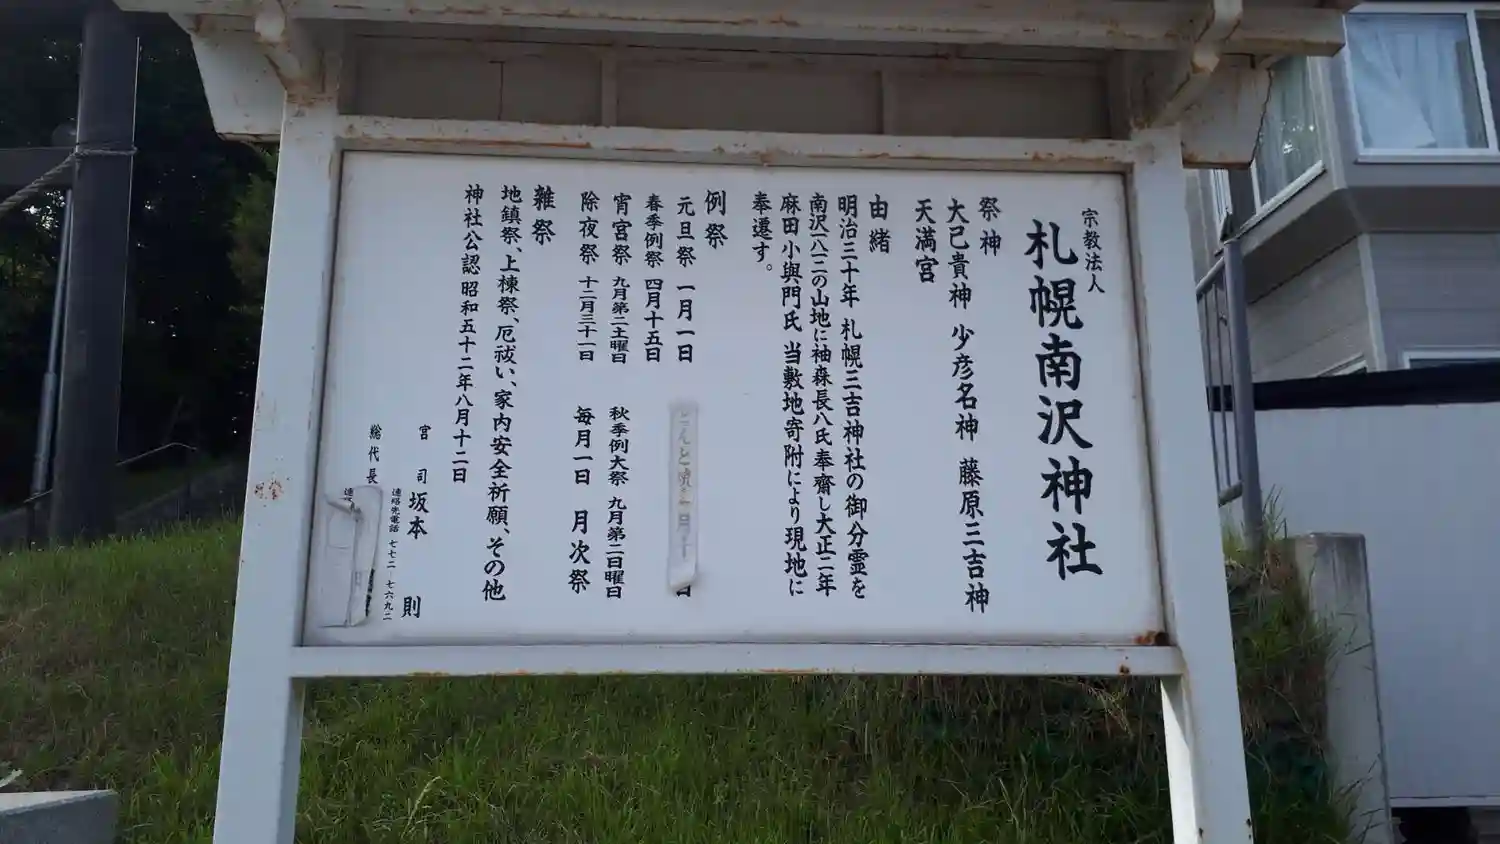 宗教法人
札幌南沢神社
祭神
大己貴神 少彦名神 藤原三吉神
天満宮
由緒
明治三十年 札幌三吉神社の御分霊を
南沢一八二の山地に袖森長八氏奉齋し大正二年
麻田小與門氏 当敷地寄附により現地に
奉遷す。
例祭
元旦祭 一月一日
どんど焼き 一月十 日
春季例祭 四月十五日
宵宮祭 九月第二土曜日 秋季例大祭 九月第二日曜日
除夜祭 十二月三十一日 毎月一日 月次祭
雑祭
地鎮祭、上棟祭、厄祓い、家内安全祈願、その他
神社公認 昭和五十二年八月十二日
宮司 坂本 則
連絡先電話 七七二-七六九二
総代長
連絡